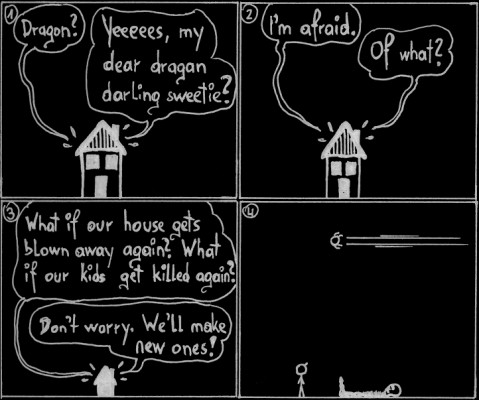 1
Dragon?
Yeeeees, my
dear dragan
darling sweetie?
2
I'm afraid.
Of what?
3
What if our house gets
blown away again? What
if our kids get killed again?
Don't worry. We'll make
new ones!
4